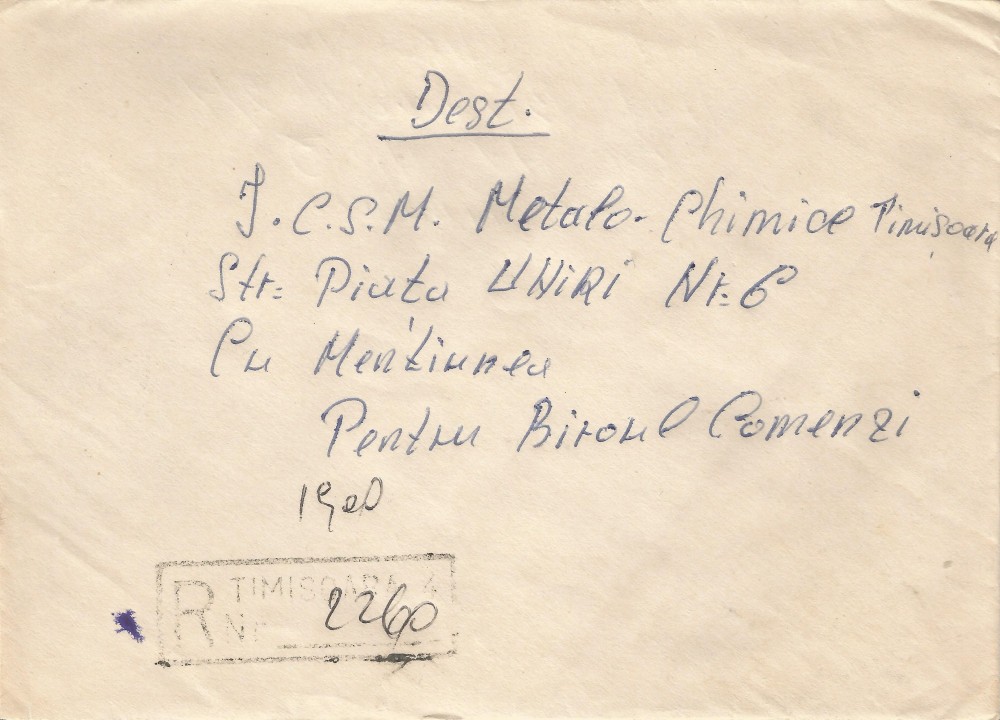 Dest.
I.C.S.M. Metalo-Chimice Timişoara
Str= Piata UNiRi Nr=6
Cu Menţiunea
Pentru Biroul Comenzi
1900
R TIMISOARA 4
Nr 2260